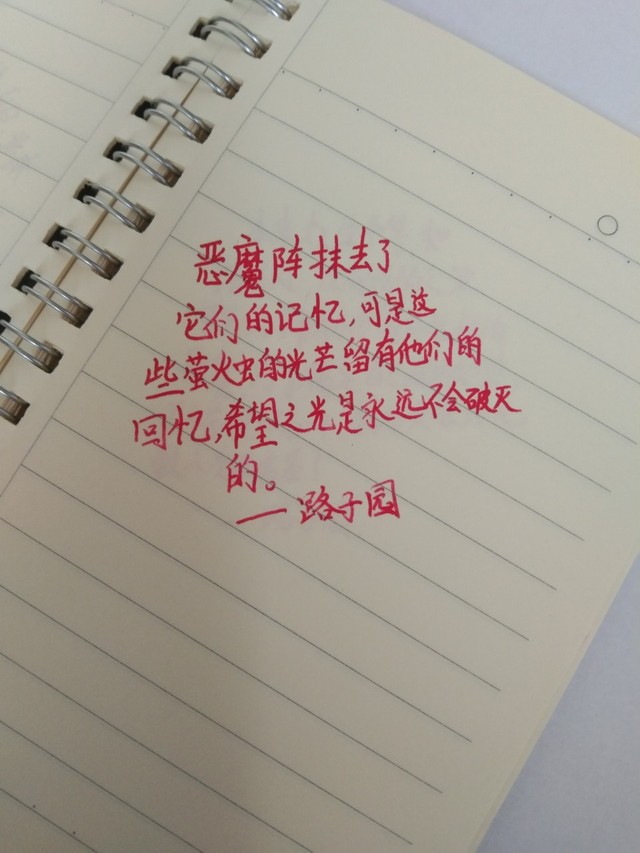 恶魔阵抹去了
它们的记忆,可是这
些萤火虫的光芒留有他们的
回忆,希望之光是永远不会破灭
的。
——路子园